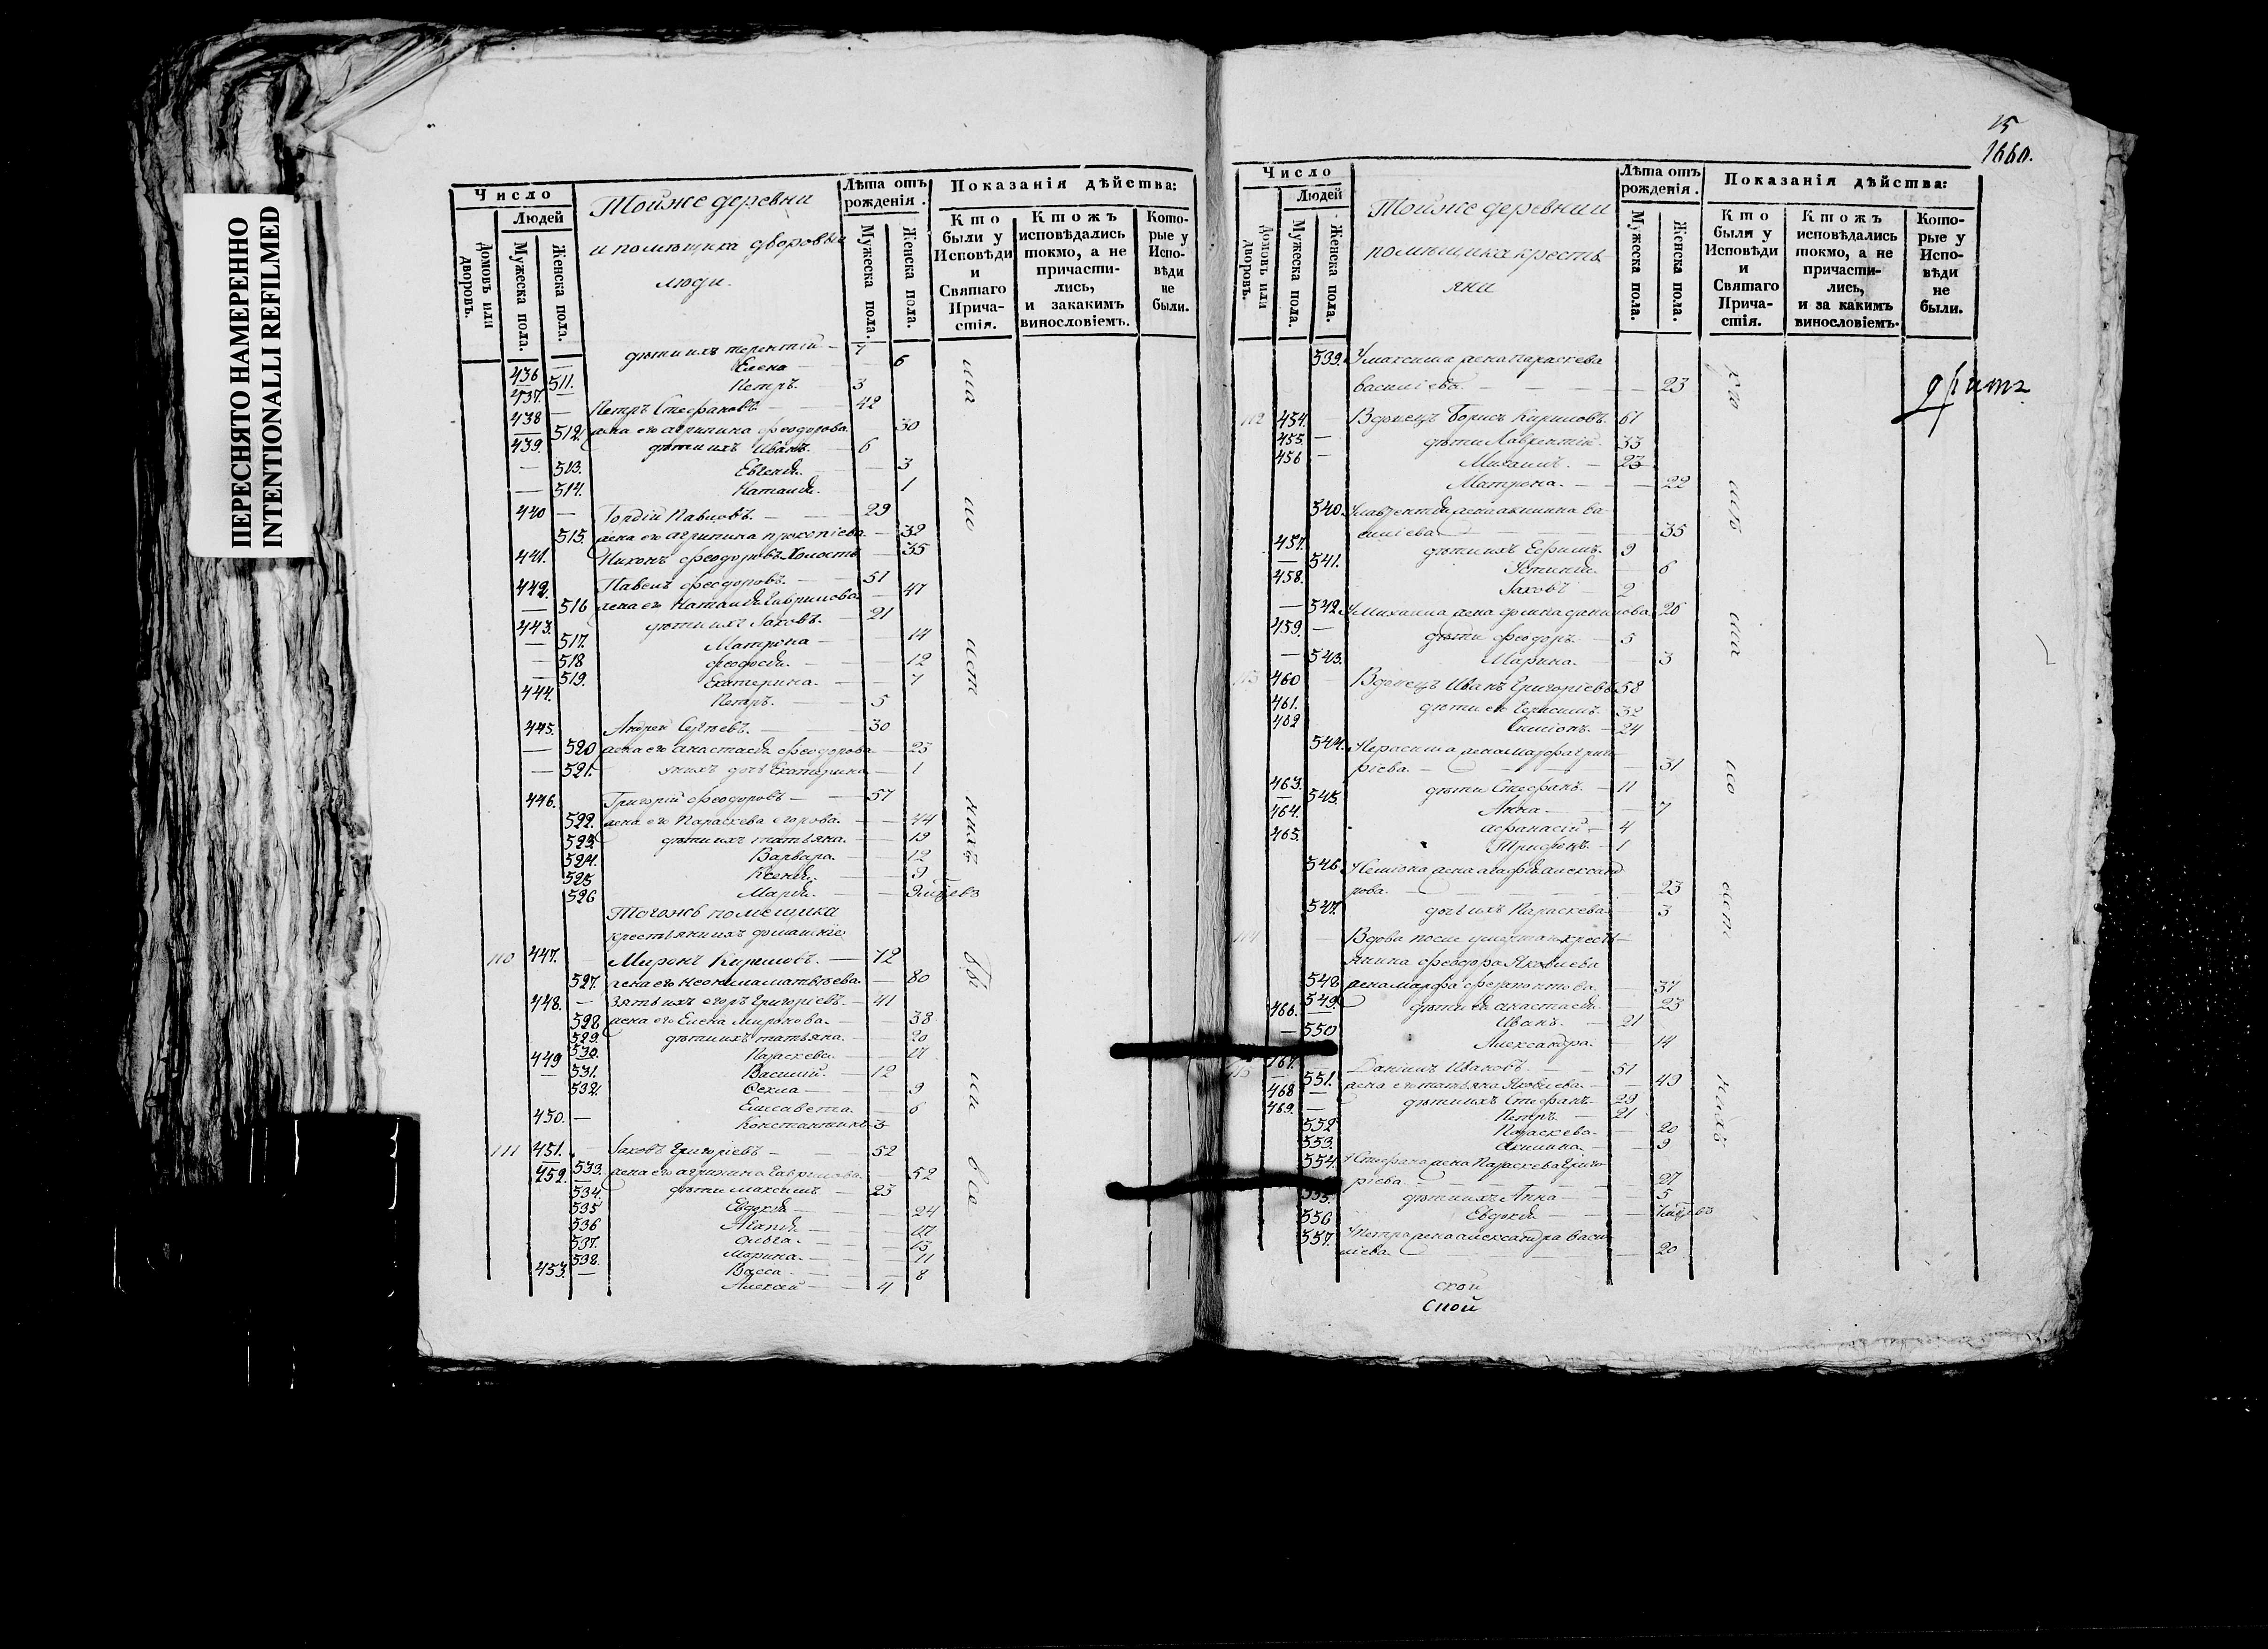 ПЕРЕСНЯТО НАМЕРЕННО
INTENTIONALLI REFILMED
Число
Людей
Домовъ или дворовъ.
Мужеска пола.
Женска пола.
Тойже деревни
и помѣщика дворовыи
люди.
Лѣта отъ рожденія.
Мужеска пола.
Женска пола.
Показанія дѣйства:
Кто были у Исповѣди и Святаго Прича-стія.
Ктожъ исповѣдались токмо, а не причасти-лись, и закакимъ винословіемъ.
Кото-рые у Испо-вѣди не были.
436 — дѣти ихъ терентій — 7
511. Елена — 6
437. — Петръ. 3
438 — Петръ Стефановъ. — 42
512. жена его агрипина феодорова. 30
439. дѣти ихъ Иванъ. — 6
— 513. Евгенія. — 3
— 514. Наталія. — 1
440 — Гордій Павловъ. — 29
515. жена его агрипина прокопіева — 32
441. Никонъ феодоровъ Холостъ — 35
442. Павелъ феодоровъ. — 51
— 516 жена его Наталія Гаврилова — 47
443. дѣти ихъ Іаковъ. — 21
— 517. Матрона — 14
— 518 феодосія. — 12
— 519. Екатерина. — 7
444. Петръ. — 5
445. Андрей Сергѣевъ. — 30
— 520 жена его анастасія феодорова — 25
— 521. у нихъ дочь Екатерина — 1
446. Григорій феодоровъ — 57
522. жена его Параскева егорова. — 44
523. дѣти ихъ татьяна. — 19
524. Варвара. — 12
525 Ксенія. — 9
526 Марія. —
Тогожъ помещика
крестьяни ихъ домашніе
110 447. Миронъ Кириловъ. — 72
527. жена его Неонила матвѣева. — 80
448. — зять ихъ егоръ Григоріевъ. — 41
528 жена его Елена Миронова. — 38
529. дѣти ихъ татьяна. — 20
530. Параскева. — 17
449 Василій. — 12
531. Фекла — 9
532. Елисавета. — 6
450. — Константинъ. 3
111 451. Іаковъ Григоріевъ — 52
533. жена его агрипина Гаврилова. 52
452. дѣти максимъ — 23
534. Евдокія — 24
535 Агапія — 17
536 Ольга. — 13
537. Марина. — 11
538. Васса — 8
453. — Алексѣй — 4
Число
Людей
Домовъ или дворовъ.
Мужеска пола.
Женска пола.
Тойже деревни и
помѣщика кресть-
яни
Лѣта отъ рожденія.
Мужеска пола.
Женска пола.
Показанія дѣйства:
Кто были у Исповѣди и Святаго Прича-стія.
Ктожъ исповѣдались токмо, а не причасти-лись, и за какимъ винословіемъ.
Кото-рые у Испо-вѣди не были.
15
1660.
539. У максима жена параскева
василіева. — 23
112 454. Вдовецъ Борисъ Кириловъ. 61
455. — дѣти Лаврентій. 33
456 — Михаилъ. — 23
Матрона. — 22
540. У лаврентія жена акилина ва-
силіева — 35
457. дѣти ихъ Ефимъ. 9
541. Устинія. — 6
458. Іаковъ — 2
— 542. У Михаила жена фекла данилова. 26
459. — дѣти феодоръ. — 5
— 543. Марина. — 3
113 460 Вдовецъ Иванъ Григоріевъ 58
461. дѣти его Герасимъ. 32
462 Симіонъ. — 24
544. У Герасима жена марфа григо-
ріева. — 31
463. дѣти Стефанъ. — 11
545. Анна — 7
464. афанасій — 4
465. Трифонъ. — 1
546. У Семіона жена агафія александ
рова. — 23
547. дочь ихъ Параскева 3
114 Вдова после умершаго кресть-
янина феодора Яковлева
548 жена марфа — 37
549. дѣти ея анастасія. 23
466. Иванъ. — 21
— 550 Александра. — 14
115 467. Даніилъ Ивановъ. — 51
551. жена его татьяна Яковлева. — 49
468 — дѣти ихъ Стефанъ. 29
469. — Петръ — 21
552 Параскева — 20
553. акилина — 9
554. У Стефана жена Параскева Григо-
ріева — 27
555. дѣти ихъ Анна — 5
556 Евдокія —
557. У петра жена александра васи
ліева. — 20